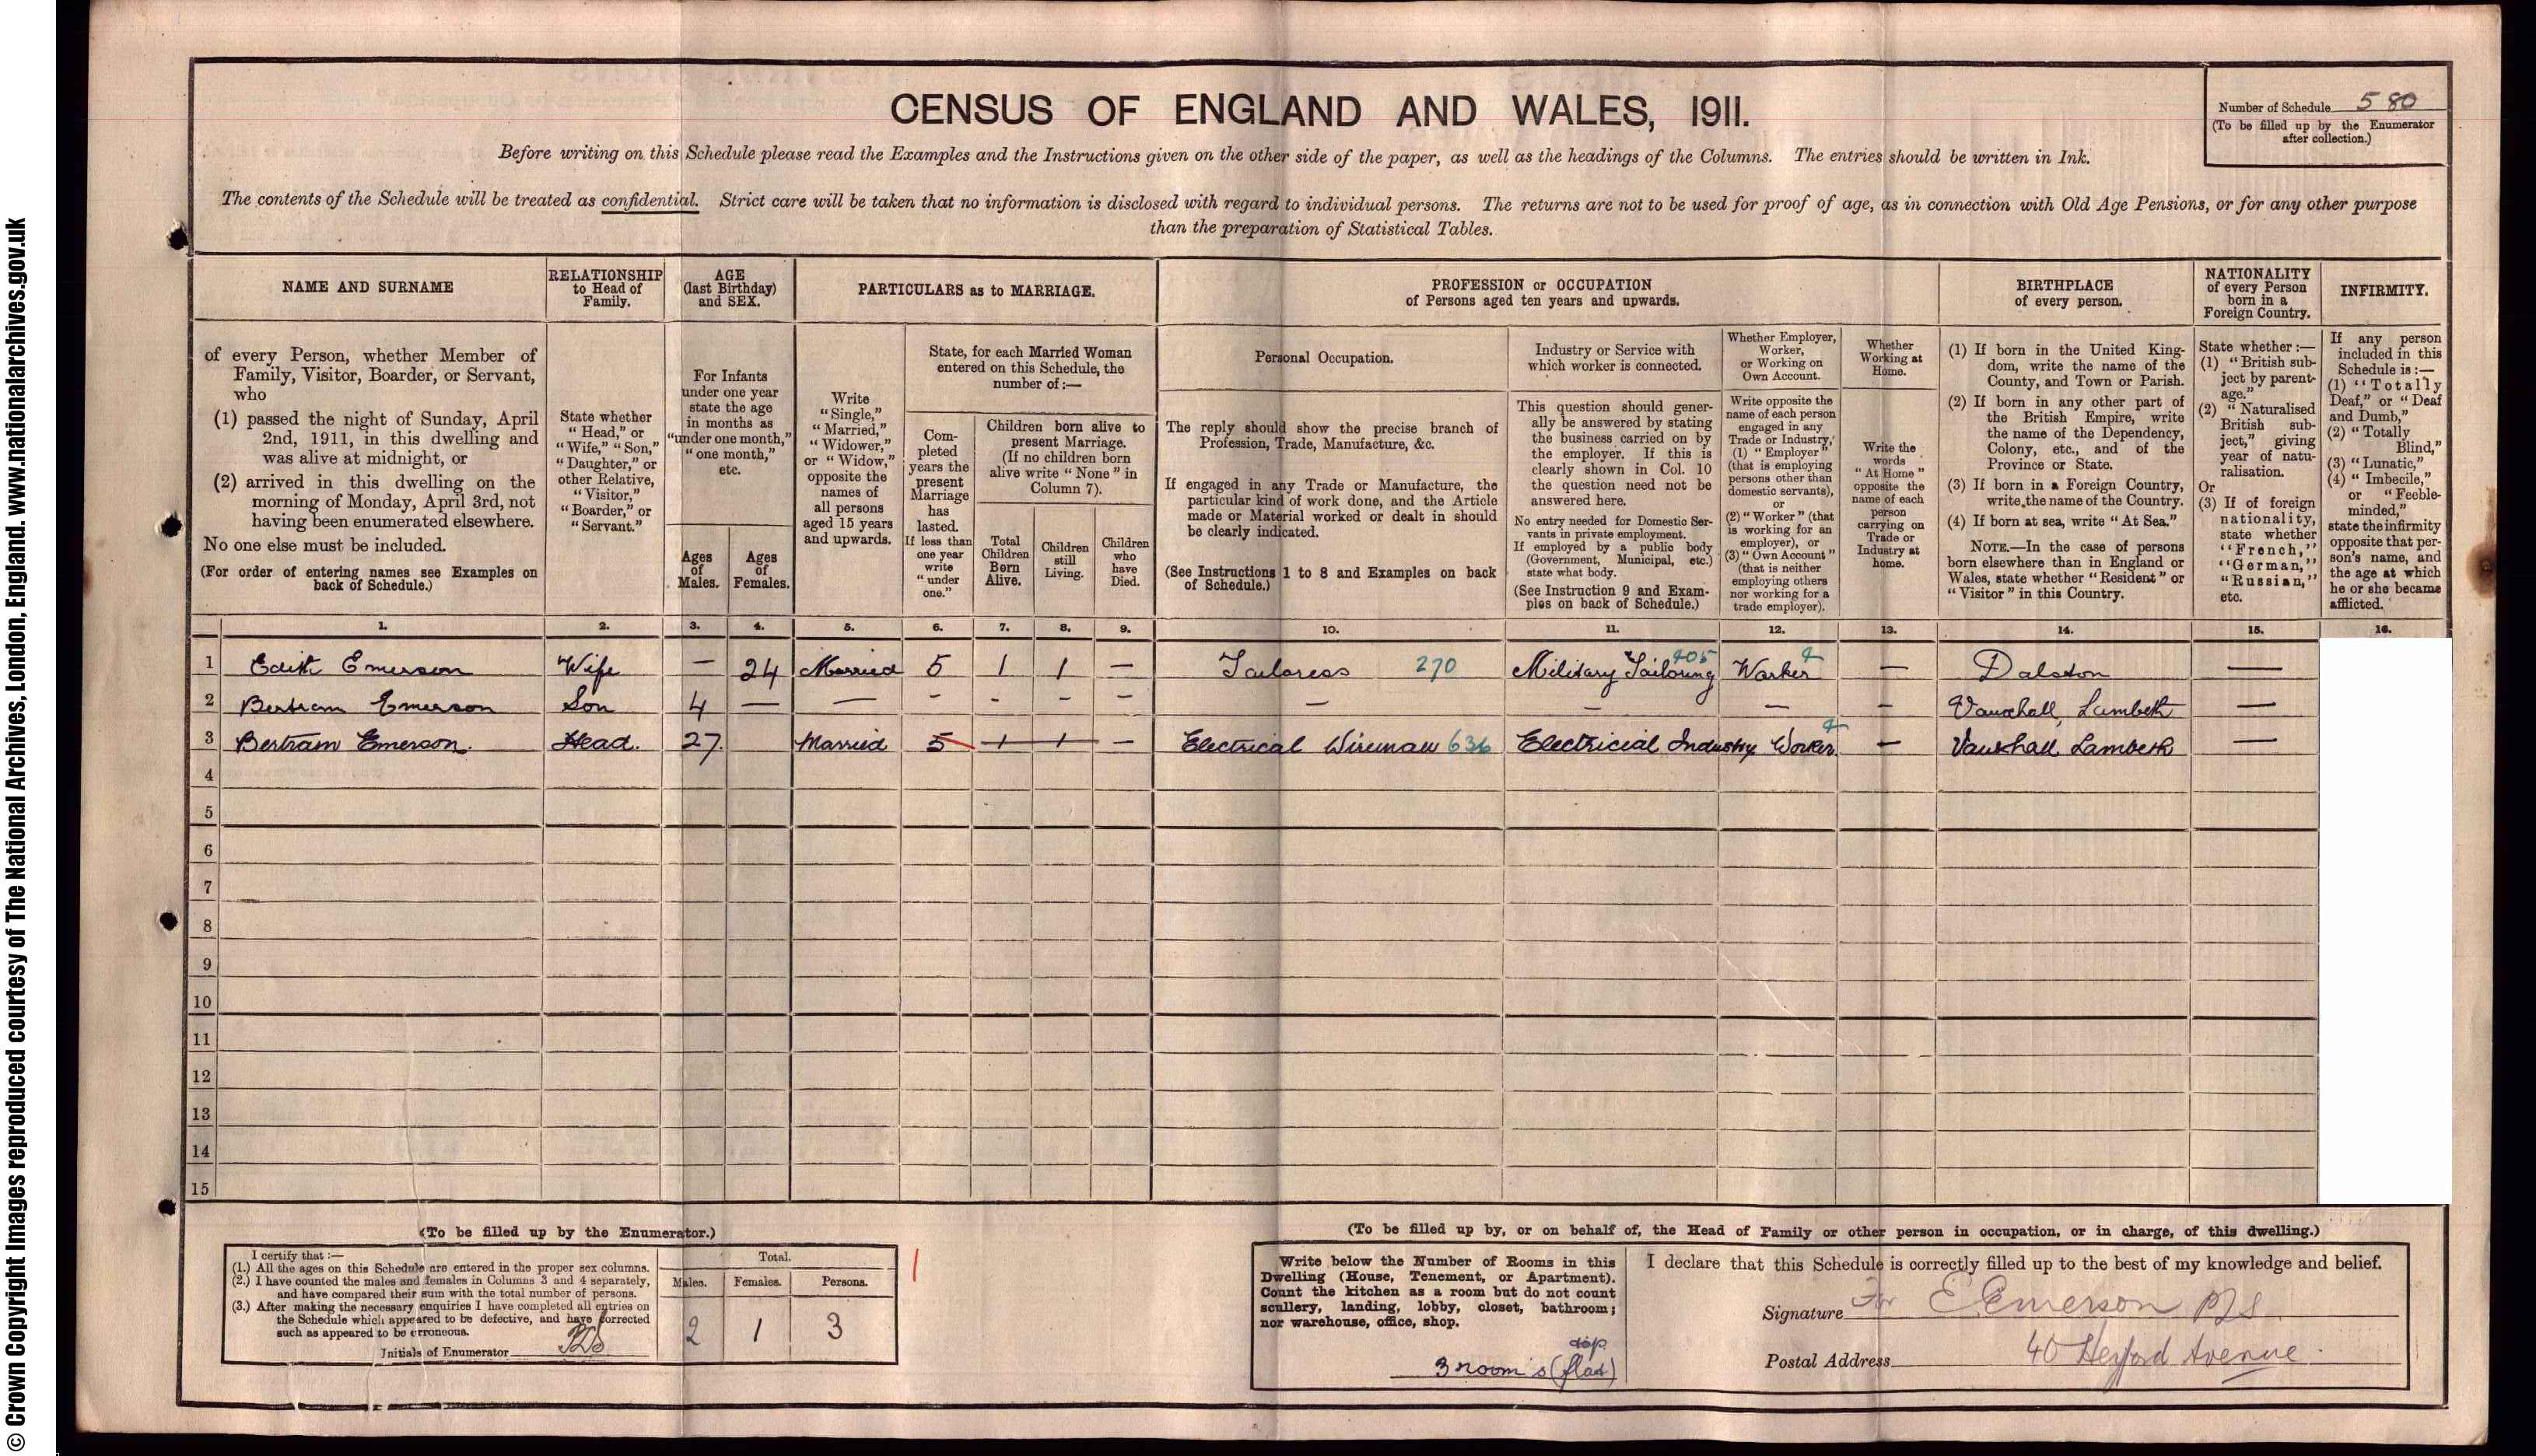 © Crown Copyright Images reproduced courtesy of The National Archives, London, England. www.nationalarchives.gov.uk
CENSUS OF ENGLAND AND WALES, 1911.
Number of Schedule 580
(To be filled up by the Enumerator
after collection.)
Before writing on this Schedule please read the Examples and the Instructions given on the other side of the paper, as well as the headings of the Columns. The entries should be written in Ink.
The contents of the Schedule will be treated as confidential. Strict care will be taken that no information is disclosed with regard to individual persons. The returns are not to be used for proof of age, as in connection with Old Age Pensions, or for any other purpose
than the preparation of Statistical Tables.
NAME AND SURNAME
of every Person, whether Member of
Family, Visitor, Boarder, or Servant,
who
(1) passed the night of Sunday, April
2nd, 1911, in this dwelling and
was alive at midnight, or
(2) arrived in this dwelling on the
morning of Monday, April 3rd, not
having been enumerated elsewhere.
No one else must be included.
(For order of entering names see Examples on
back of Schedule.)
RELATIONSHIP
to Head of
Family.
State whether
"Head," or
"Wife," "Son,"
"Daughter," or
other Relative,
"Visitor,"
"Boarder," or
"Servant."
AGE
(last Birthday)
and SEX.
For Infants
under one year
state the age
in months as
"under one month,"
"one month,"
etc.
Ages
of
Males.
Ages
of
Females.
PARTICULARS as to MARRIAGE.
Write
"Single,"
"Married,"
"Widower,"
or "Widow,"
opposite the
names of
all persons
aged 15 years
and upwards.
State, for each Married Woman
entered on this Schedule, the
number of:—
Com-
pleted
years the
present
Marriage
has
lasted.
If less than
one year
write
"under
one."
Children born alive to
present Marriage.
(If no children born
alive write "None" in
Column 7).
Total
Children
Born
Alive.
Children
still
Living.
Children
who
have
Died.
PROFESSION or OCCUPATION
of Persons aged ten years and upwards.
Personal Occupation.
The reply should show the precise branch of
Profession, Trade, Manufacture, &c.
If engaged in any Trade or Manufacture, the
particular kind of work done, and the Article
made or Material worked or dealt in should
be clearly indicated.
(See Instructions 1 to 8 and Examples on back
of Schedule.)
Industry or Service with
which worker is connected.
This question should gener-
ally be answered by stating
the business carried on by
the employer. If this is
clearly shown in Col. 10
the question need not be
answered here.
No entry needed for Domestic Ser-
vants in private employment.
If employed by a public body
(Government, Municipal, etc.)
state what body.
(See Instruction 9 and Exam-
ples on back of Schedule.)
Whether Employer,
Worker,
or Working on
Own Account.
Write opposite the
name of each person
engaged in any
Trade or Industry,
(1) "Employer"
(that is employing
persons other than
domestic servants),
or
(2) "Worker" (that
is working for an
employer), or
(3) "Own Account"
(that is neither
employing others
nor working for a
trade employer).
Whether
Working at
Home.
Write the
words
"At Home"
opposite the
name of each
person
carrying on
Trade or
Industry at
home.
BIRTHPLACE
of every person.
(1) If born in the United King-
dom, write the name of the
County, and Town or Parish.
(2) If born in any other part of
the British Empire, write
the name of the Dependency,
Colony, etc., and of the
Province or State.
(3) If born in a Foreign Country,
write the name of the Country.
(4) If born at sea, write "At Sea."
NOTE.—In the case of persons
born elsewhere than in England or
Wales, state whether "Resident" or
"Visitor" in this Country.
NATIONALITY
of every Person
born in a
Foreign Country.
State whether:—
(1) "British sub-
ject by parent-
age."
(2) "Naturalised
British sub-
ject," giving
year of natu-
ralisation.
Or
(3) If of foreign
nationality,
state whether
"French,"
"German,"
"Russian,"
etc.
INFIRMITY.
If any person
included in this
Schedule is:—
(1) "Totally
Deaf," or "Deaf
and Dumb,"
(2) "Totally
Blind,"
(3) "Lunatic,"
(4) "Imbecile,"
or "Feeble-
minded,"
state the infirmity
opposite that per-
son's name, and
the age at which
he or she became
afflicted.
1. 2. 3. 4. 5. 6. 7. 8. 9. 10. 11. 12. 13. 14. 15. 16.
1 Edith Emerson Wife — 24 Married 5 1 1 — Tailoress 270 Military Tailoring 405 Worker — Dalston —
2 Bertram Emerson Son 4 — — - - - - — — — - Vauxhall, Lambeth —
3 Bertram Emerson. Head. 27. Married 5 1 1 — Electrical Wireman 636 Electricial Industry Worker — Vauxhall Lambeth —
4
5
6
7
8
9
10
11
12
13
14
15
(To be filled up by the Enumerator.)
I certify that:—
(1.) All the ages on this Schedule are entered in the proper sex columns.
(2.) I have counted the males and females in Columns 3 and 4 separately,
and have compared their sum with the total number of persons.
(3.) After making the necessary enquiries I have completed all entries on
the Schedule which appeared to be defective, and have corrected
such as appeared to be erroneous.
Initials of Enumerator
Total.
Males. Females. Persons.
2 1 3
(To be filled up by, or on behalf of, the Head of Family or other person in occupation, or in charge, of this dwelling.)
Write below the Number of Rooms in this
Dwelling (House, Tenement, or Apartment).
Count the kitchen as a room but do not count
scullery, landing, lobby, closet, bathroom;
nor warehouse, office, shop.
top
3 rooms (flat)
I declare that this Schedule is correctly filled up to the best of my knowledge and belief.
Signature For E Emerson
Postal Address 40 Heyford Avenue.